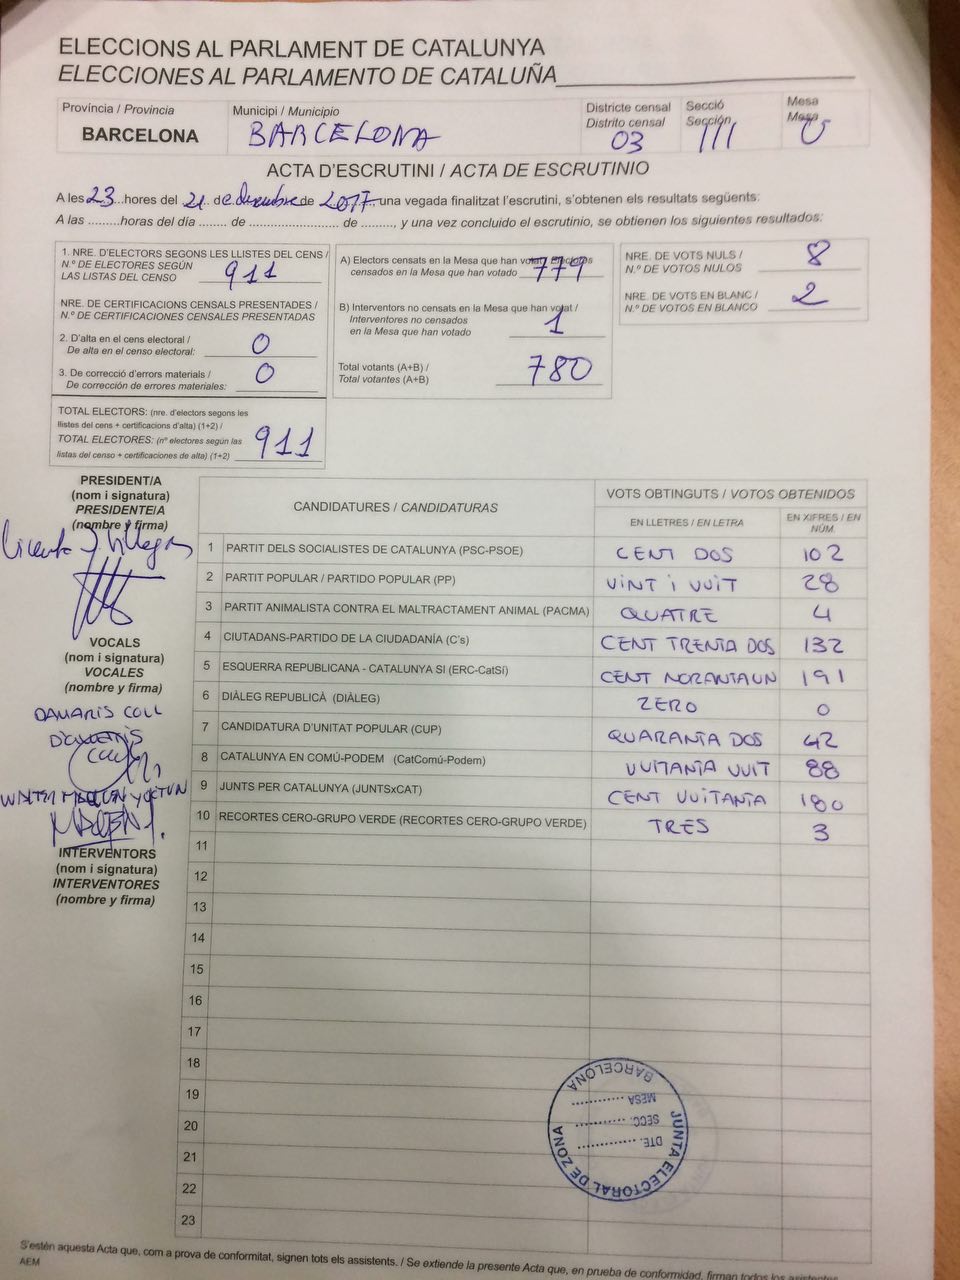 ELECCIONS AL PARLAMENT DE CATALUNYA
ELECCIONES AL PARLAMENTO DE CATALUÑA
Província / Provincia
BARCELONA
Municipi / Municipio
BARCELONA
Districte censal
Distrito censal
03
Secció
Sección
111
Mesa
Mesa
U
ACTA D'ESCRUTINI / ACTA DE ESCRUTINIO
A les 23 hores del 21 de desembre de 2017, una vegada finalitzat l'escrutini, s'obtenen els resultats següents:
A las .........horas del día ........ de ......................... de ........., y una vez concluido el escrutinio, se obtienen los siguientes resultados:
1. NRE. D'ELECTORS SEGONS LES LLISTES DEL CENS /
N.º DE ELECTORES SEGÚN
LAS LISTAS DEL CENSO 911
NRE. DE CERTIFICACIONS CENSALS PRESENTADES /
N.º DE CERTIFICACIONES CENSALES PRESENTADAS
2. D'alta en el cens electoral /
De alta en el censo electoral: 0
3. De correcció d'errors materials /
De corrección de errores materiales: 0
TOTAL ELECTORS: (nre. d'electors segons les
llistes del cens + certificacions d'alta) (1+2) /
TOTAL ELECTORES: (nº electores según las
listas del censo + certificaciones de alta) (1+2) 911
A) Electors censats en la Mesa que han votat / Electores
censados en la Mesa que han votado 779
B) Interventors no censats en la Mesa que han votat /
Interventores no censados
en la Mesa que han votado 1
Total votants (A+B) /
Total votantes (A+B) 780
NRE. DE VOTS NULS /
N.º DE VOTOS NULOS 8
NRE. DE VOTS EN BLANC /
N.º DE VOTOS EN BLANCO 2
PRESIDENT/A
(nom i signatura)
PRESIDENTE/A
(nombre y firma)
Vicente J Villegas
VOCALS
(nom i signatura)
VOCALES
(nombre y firma)
DAMARIS COLL
INTERVENTORS
(nom i signatura)
INTERVENTORES
(nombre y firma)
CANDIDATURES / CANDIDATURAS
VOTS OBTINGUTS / VOTOS OBTENIDOS
EN LLETRES / EN LETRA
EN XIFRES / EN NÚM.
1 PARTIT DELS SOCIALISTES DE CATALUNYA (PSC-PSOE) CENT DOS 102
2 PARTIT POPULAR / PARTIDO POPULAR (PP) VINT I VUIT 28
3 PARTIT ANIMALISTA CONTRA EL MALTRACTAMENT ANIMAL (PACMA) QUATRE 4
4 CIUTADANS-PARTIDO DE LA CIUDADANÍA (C's) CENT TRENTA DOS 132
5 ESQUERRA REPUBLICANA - CATALUNYA SI (ERC-CatSí) CENT NORANTA UN 191
6 DIÀLEG REPUBLICÀ (DIÀLEG) ZERO 0
7 CANDIDATURA D'UNITAT POPULAR (CUP) QUARANTA DOS 42
8 CATALUNYA EN COMÚ-PODEM (CatComú-Podem) VUITANTA VUIT 88
9 JUNTS PER CATALUNYA (JUNTSxCAT) CENT VUITANTA 180
10 RECORTES CERO-GRUPO VERDE (RECORTES CERO-GRUPO VERDE) TRES 3
11
12
13
14
15
16
17
18
19
20
21
22
23
JUNTA ELECTORAL DE ZONA
BARCELONA
DTE. ..............
SECC. ..............
MESA ..............
S'estén aquesta Acta que, com a prova de conformitat, signen tots els assistents. / Se extiende la presente Acta que, en prueba de conformidad, firman todos los asistentes
AEM